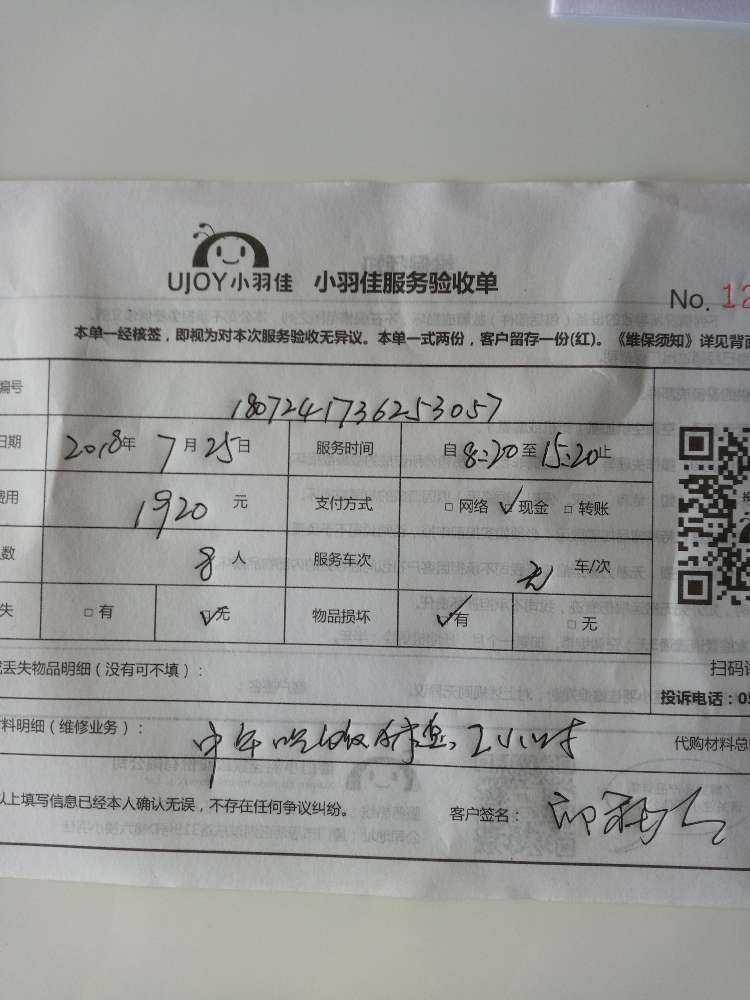 UJOY小羽佳 小羽佳服务验收单
No. 12
本单一经核签，即视为对本次服务验收无异议。本单一式两份，客户留存一份(红)。《维保须知》详见背面
编号 1807241736253057
日期 2018年 7月25日 服务时间 自8:20至15:20止
费用 1920 元 支付方式 □ 网络 ☑ 现金 □ 转账
数 8 人 服务车次 无 车/次
失 □ 有 ☑ 无 物品损坏 ☑ 有 □ 无
丢失物品明细（没有可不填）：
扫码
投诉电话：05
料明细（维修业务）： 中午吃饭休息2小时 代购材料总
以上填写信息已经本人确认无误，不存在任何争议纠纷。 客户签名：